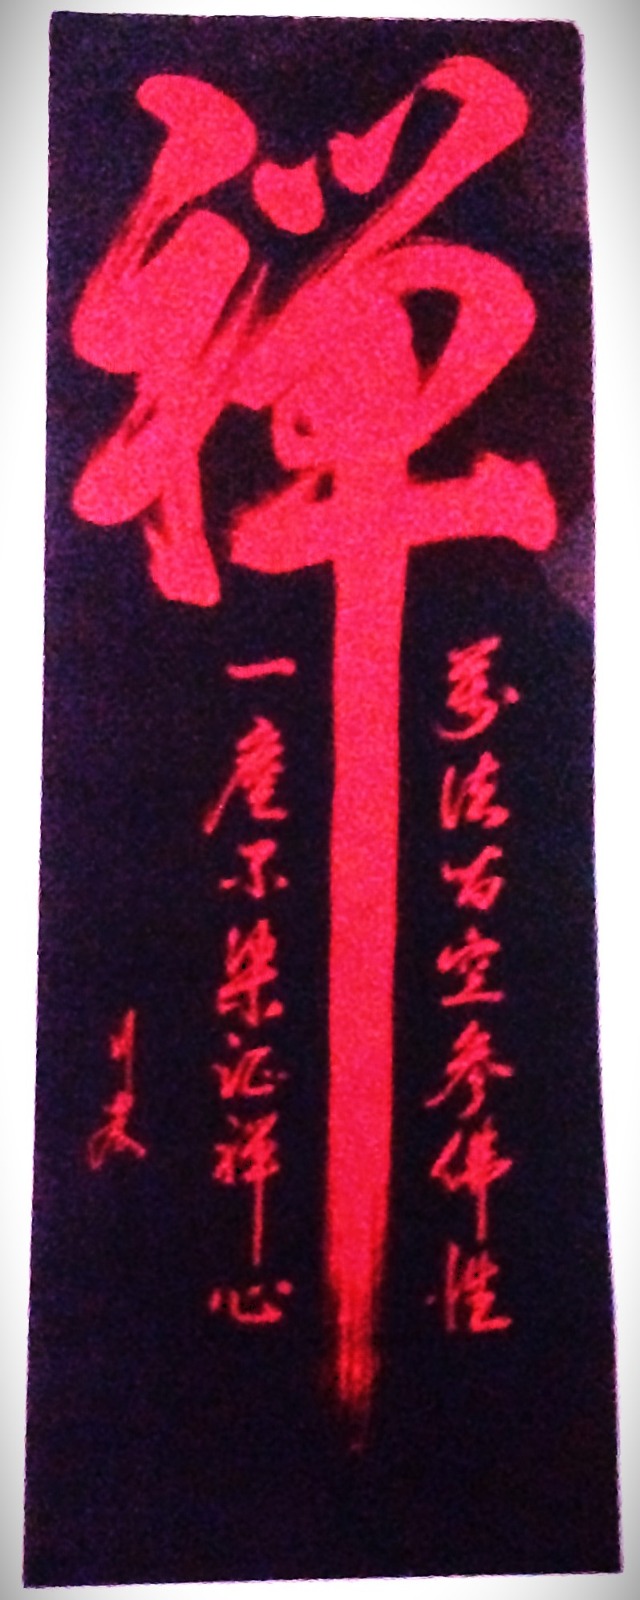 禅
萬法皆空参佛性
一塵不染证禅心